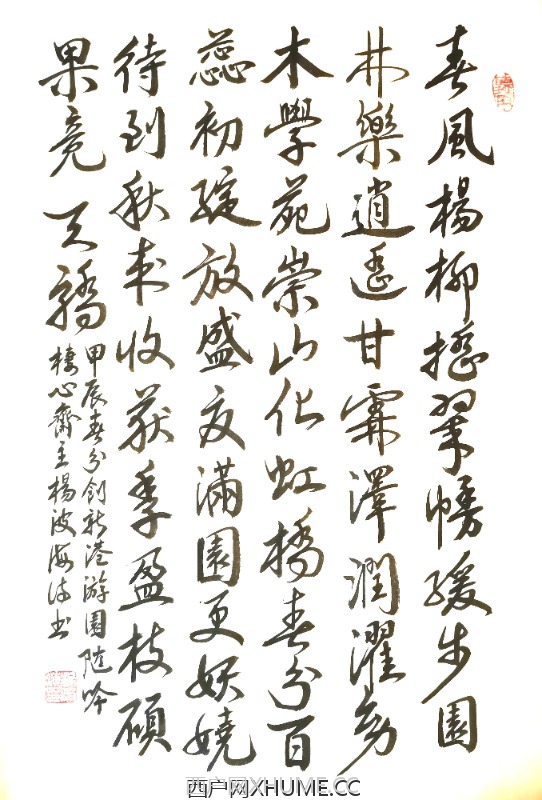 春風楊柳搖翠幔緩步園
林樂逍遥甘霖澤潤濯幼
木學苑崇山化虹橋春分百
蕊初綻放盛夏滿園更妖嬈
待到秋来收获季盈枝碩
果竞天驕
甲辰春分創新港游園随吟
棲心齋主楊波海诗书
西户网XHUME.CC